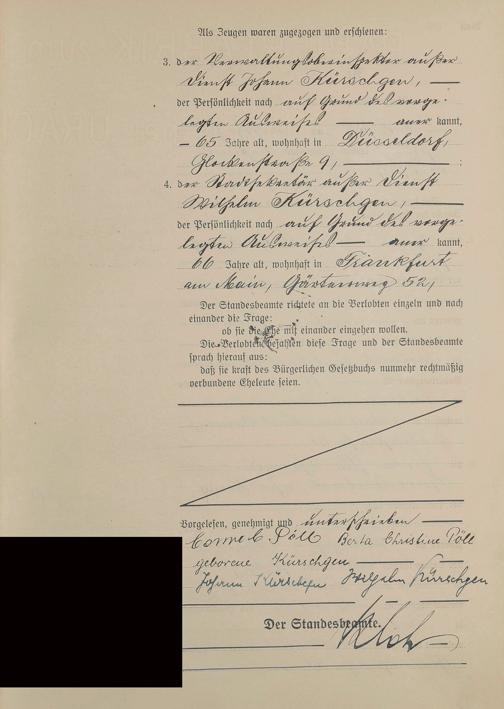 Als Zeugen waren zugezogen und erschienen:
3. der Verwaltungsoberinspektor außer
Dienst Johann Kürschgen,
der Persönlichkeit nach auf Grund des vorge-
legten Ausweises aner kannt,
65 Jahre alt, wohnhaft in Düsseldorf,
Glockenstraße 9, ;
4. der Stadtsekretär außer Dienst
Wilhelm Kürschgen,
der Persönlichkeit nach auf Grund des vorge-
legten Ausweises aner kannt,
66 Jahre alt, wohnhaft in Frankfurt
am Main, Gärtenweg 52,
Der Standesbeamte richtete an die Verlobten einzeln und nach
einander die Frage:
ob sie die Ehe mit einander eingehen wollen.
Die Verlobten bejahten diese Frage und der Standesbeamte
sprach hierauf aus:
daß sie kraft des Bürgerlichen Gesetzbuchs nunmehr rechtmäßig
verbundene Eheleute seien.
Vorgelesen, genehmigt und unterschrieben
Pöll Berta Christine Pöll
geborene Kürschgen
Johann Kürschgen Wilhelm Kürschgen
Der Standesbeamte.